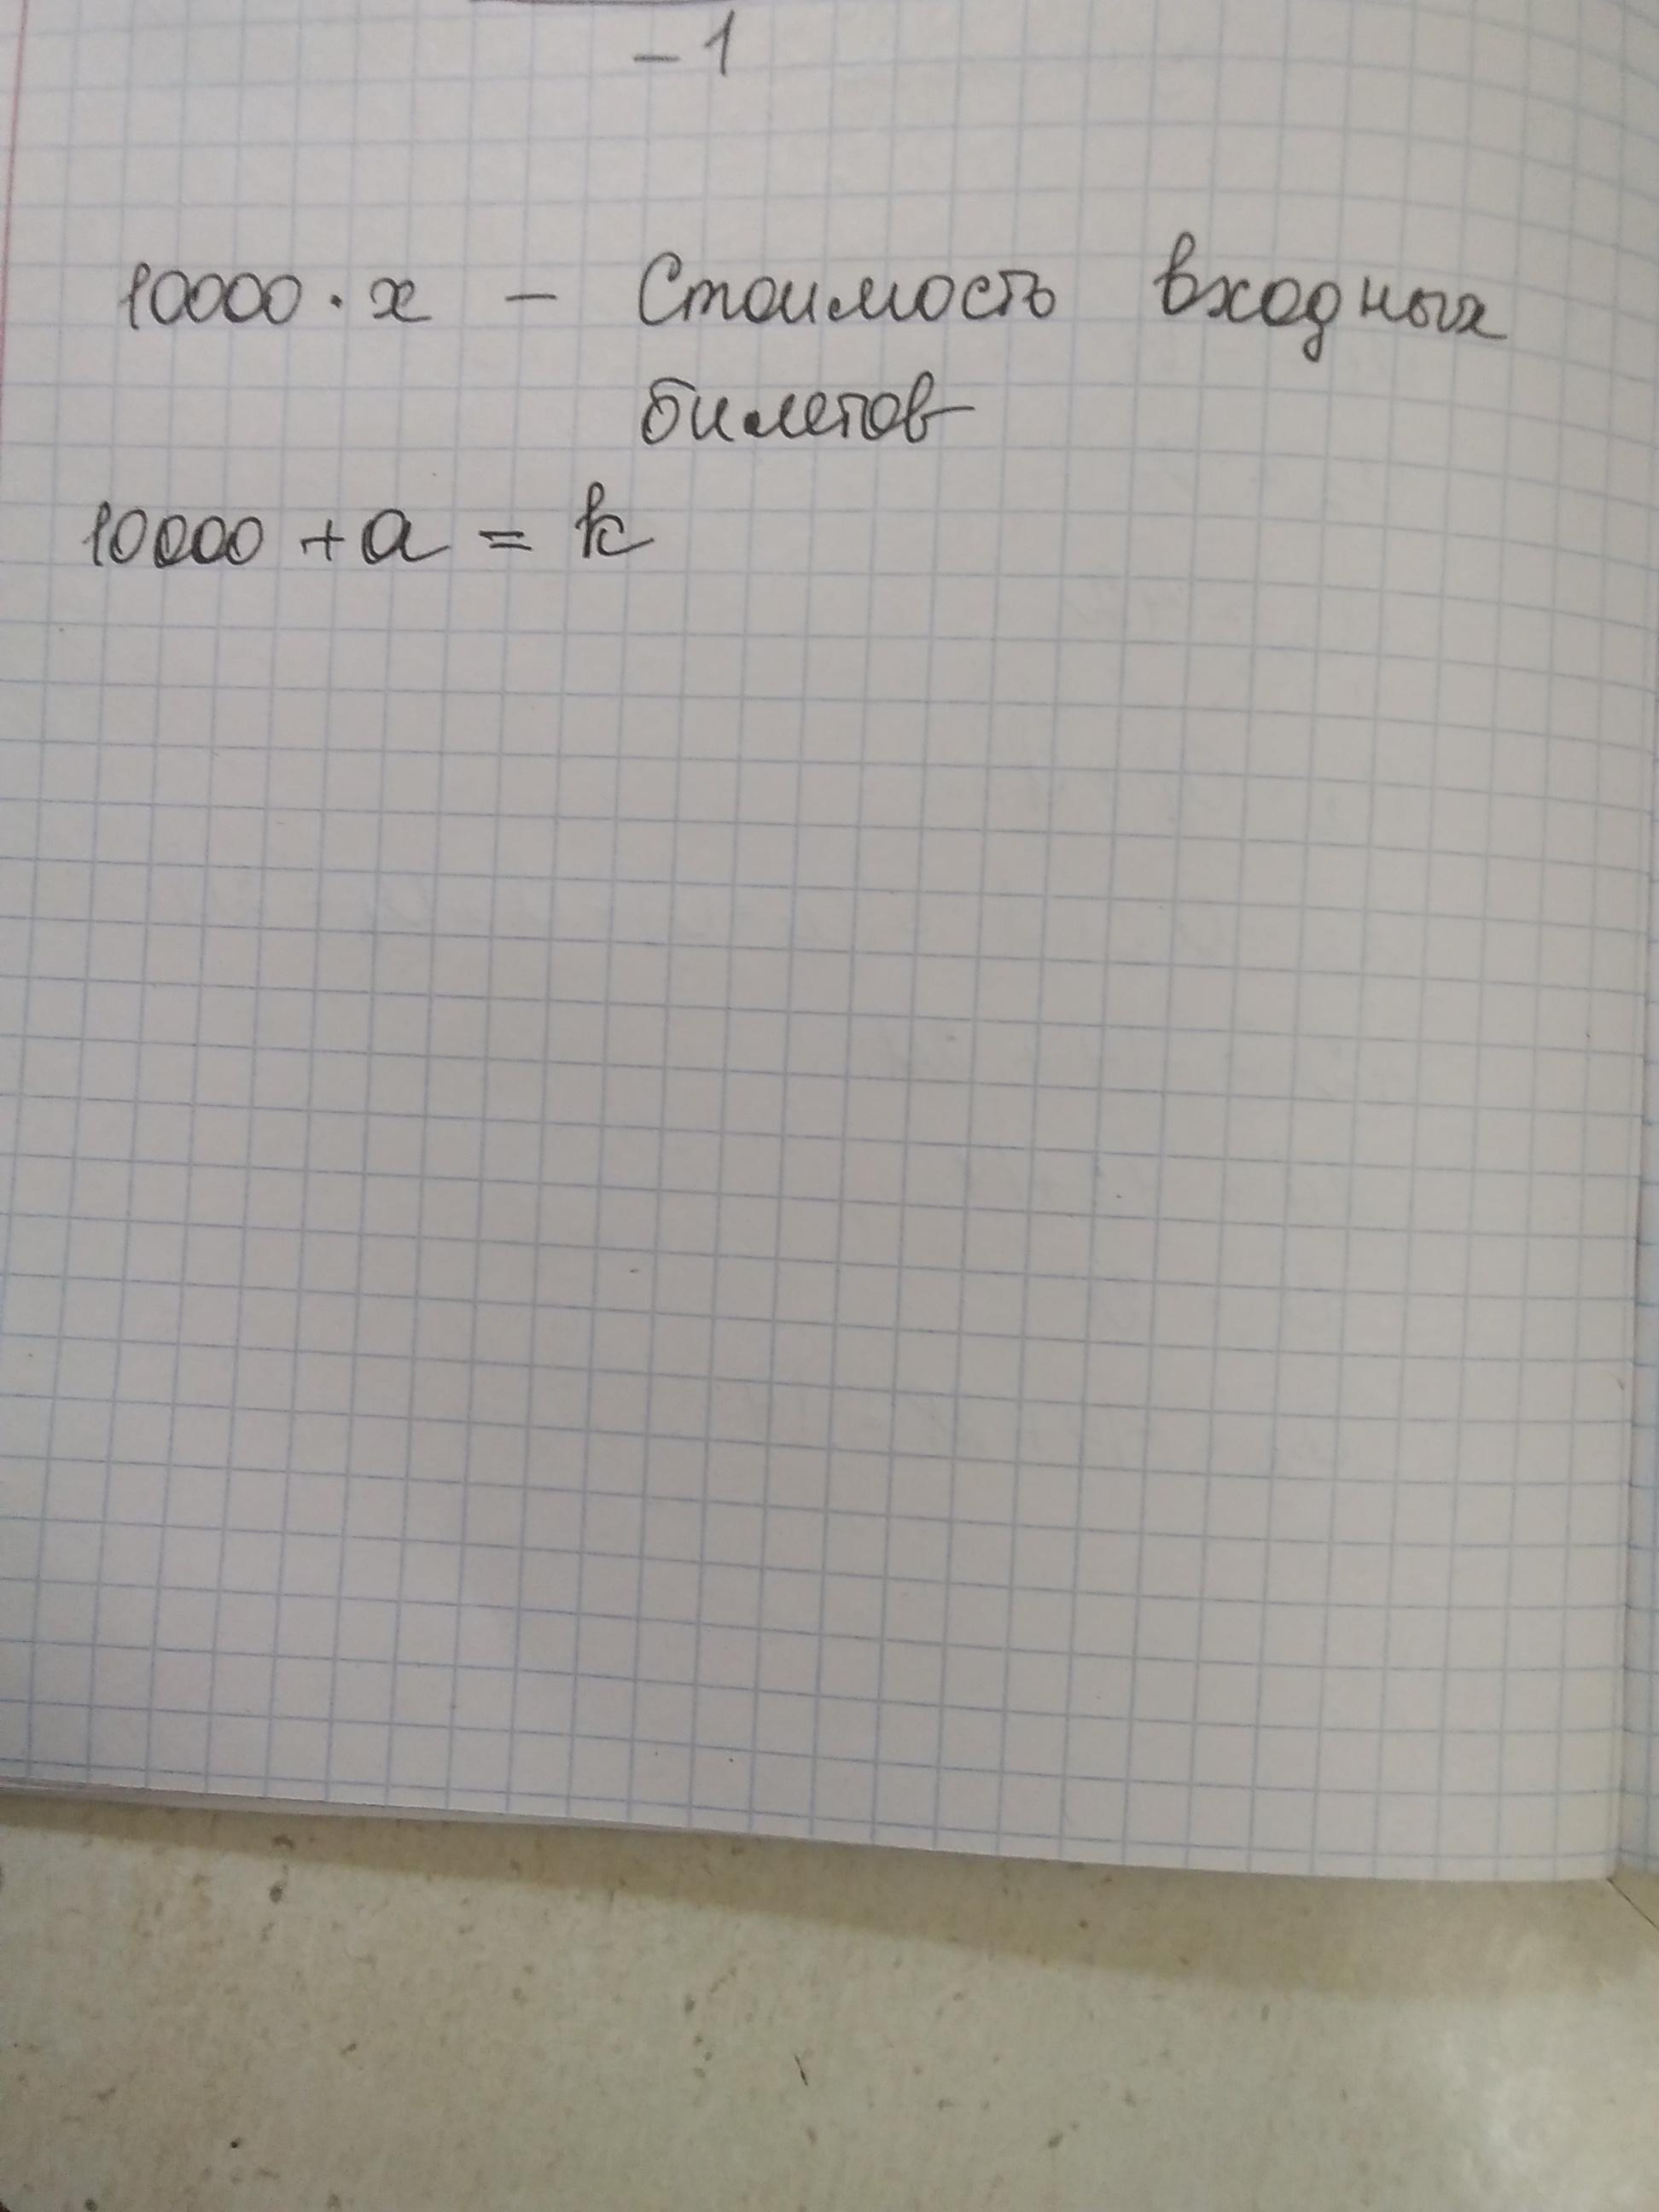 – 1
10000 · x – Стоимость входных
билетов
10000 + a = k